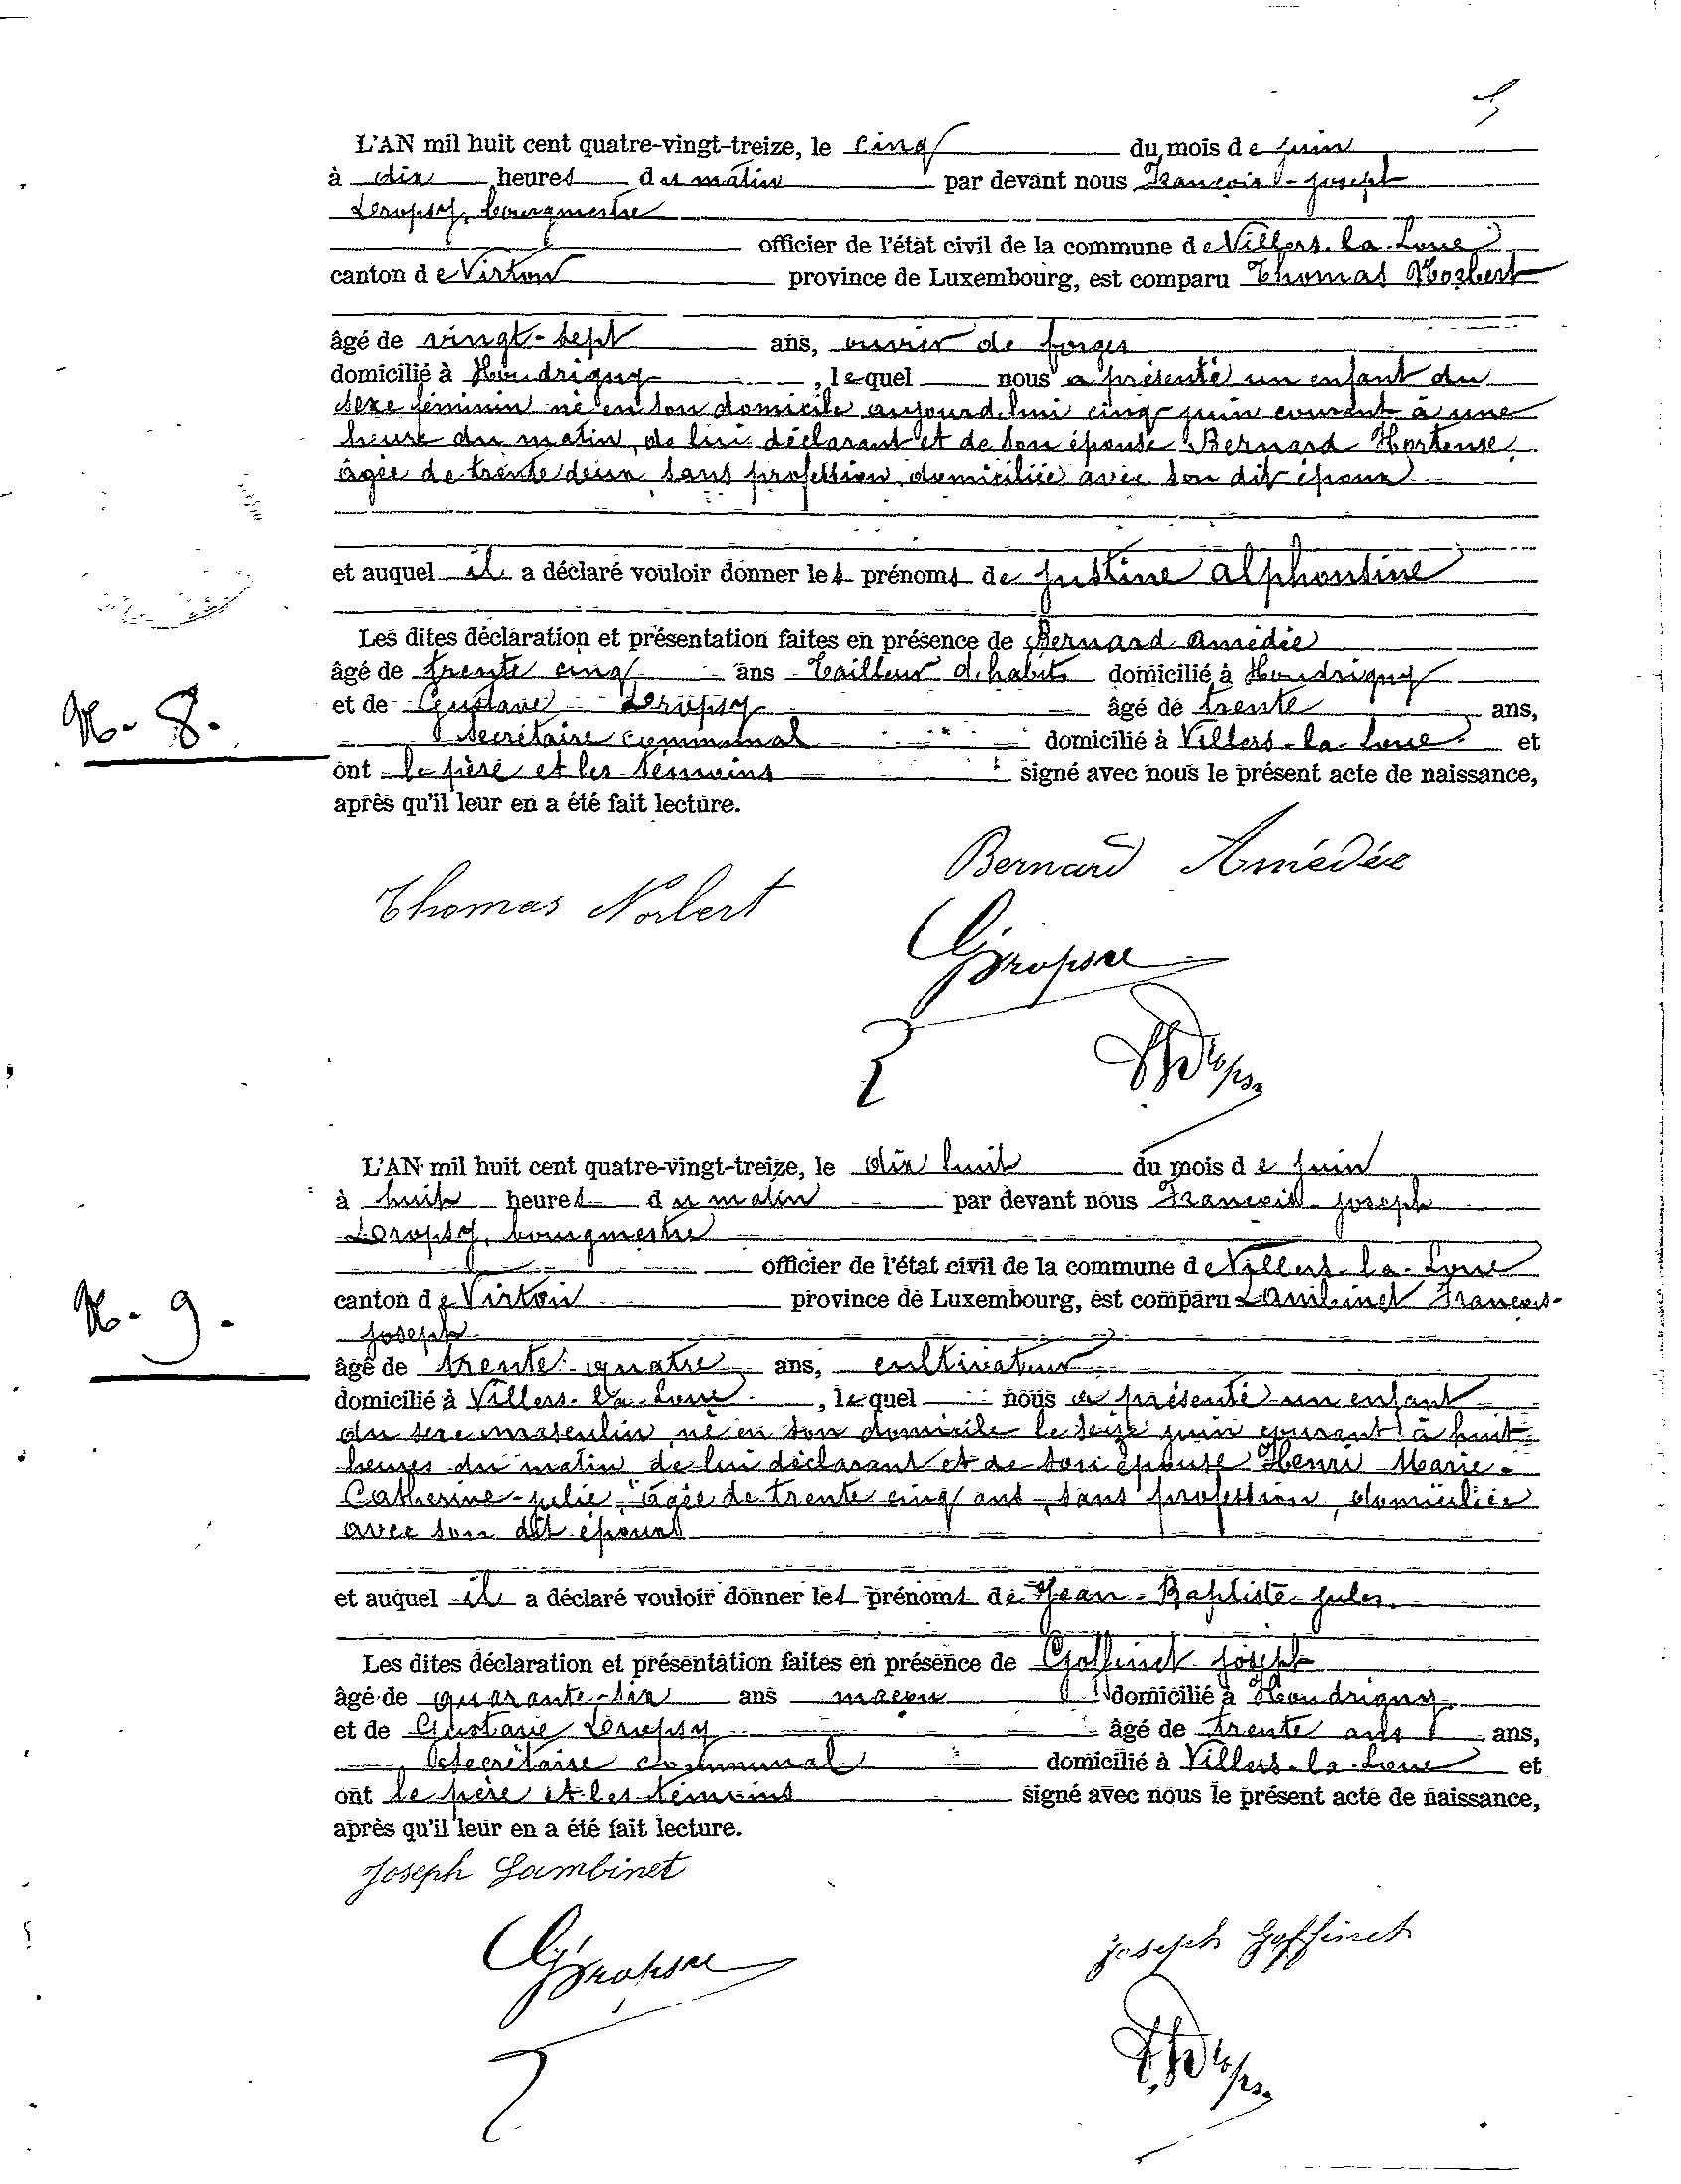 5
L'AN mil huit cent quatre-vingt-treize, le cinq du mois de juin
à dix heures du matin par devant nous François-Joseph
Dropsy, bourgmestre
officier de l'état civil de la commune de Villers-la-Loue
canton de Virton province de Luxembourg, est comparu Thomas Norbert
âgé de vingt-sept ans, ouvrier de forges
domicilié à Houdrigny, lequel nous a présenté un enfant du
sexe féminin né en son domicile aujourd'hui cinq juin courant à une
heure du matin, de lui déclarant et de son épouse Bernard Hortense,
âgée de trente deux, sans profession, domiciliée avec son dit époux
et auquel il a déclaré vouloir donner les prénoms de Justine Alphonsine
Les dites déclaration et présentation faites en présence de Bernard Amédée
âgé de trente cinq ans Tailleur d'habits domicilié à Houdrigny
N. 8.
et de Gustave Dropsy âgé de trente ans,
Secrétaire communal domicilié à Villers-la-Loue et
ont le père et les témoins signé avec nous le présent acte de naissance,
après qu'il leur en a été fait lecture.
Bernard Amédée
Thomas Norbert
G. Dropsy
F J Dropsy
L'AN mil huit cent quatre-vingt-treize, le dix huit du mois de juin
à huit heures du matin par devant nous François-Joseph
Dropsy, bourgmestre
officier de l'état civil de la commune de Villers-la-Loue
N. 9.
canton de Virton province de Luxembourg, est comparu Lambinet François-
Joseph
âgé de trente-quatre ans, cultivateur
domicilié à Villers-la-Loue, lequel nous a présenté un enfant
du sexe masculin, né en son domicile le seize juin courant à huit
heures du matin de lui déclarant et de son épouse Henri Marie-
Catherine-Julie, âgée de trente cinq ans, sans profession, domiciliée
avec son dit époux
et auquel il a déclaré vouloir donner les prénoms de Jean-Baptiste-Jules.
Les dites déclaration et présentation faites en présence de Goffinet Joseph
âgé de quarante-six ans maçon domicilié à Houdrigny
et de Gustave Dropsy âgé de trente ans ans,
Secrétaire communal domicilié à Villers-la-Loue et
ont le père et les témoins signé avec nous le présent acte de naissance,
après qu'il leur en a été fait lecture.
Joseph Lambinet
G. Dropsy
Joseph Goffinet
F J Dropsy